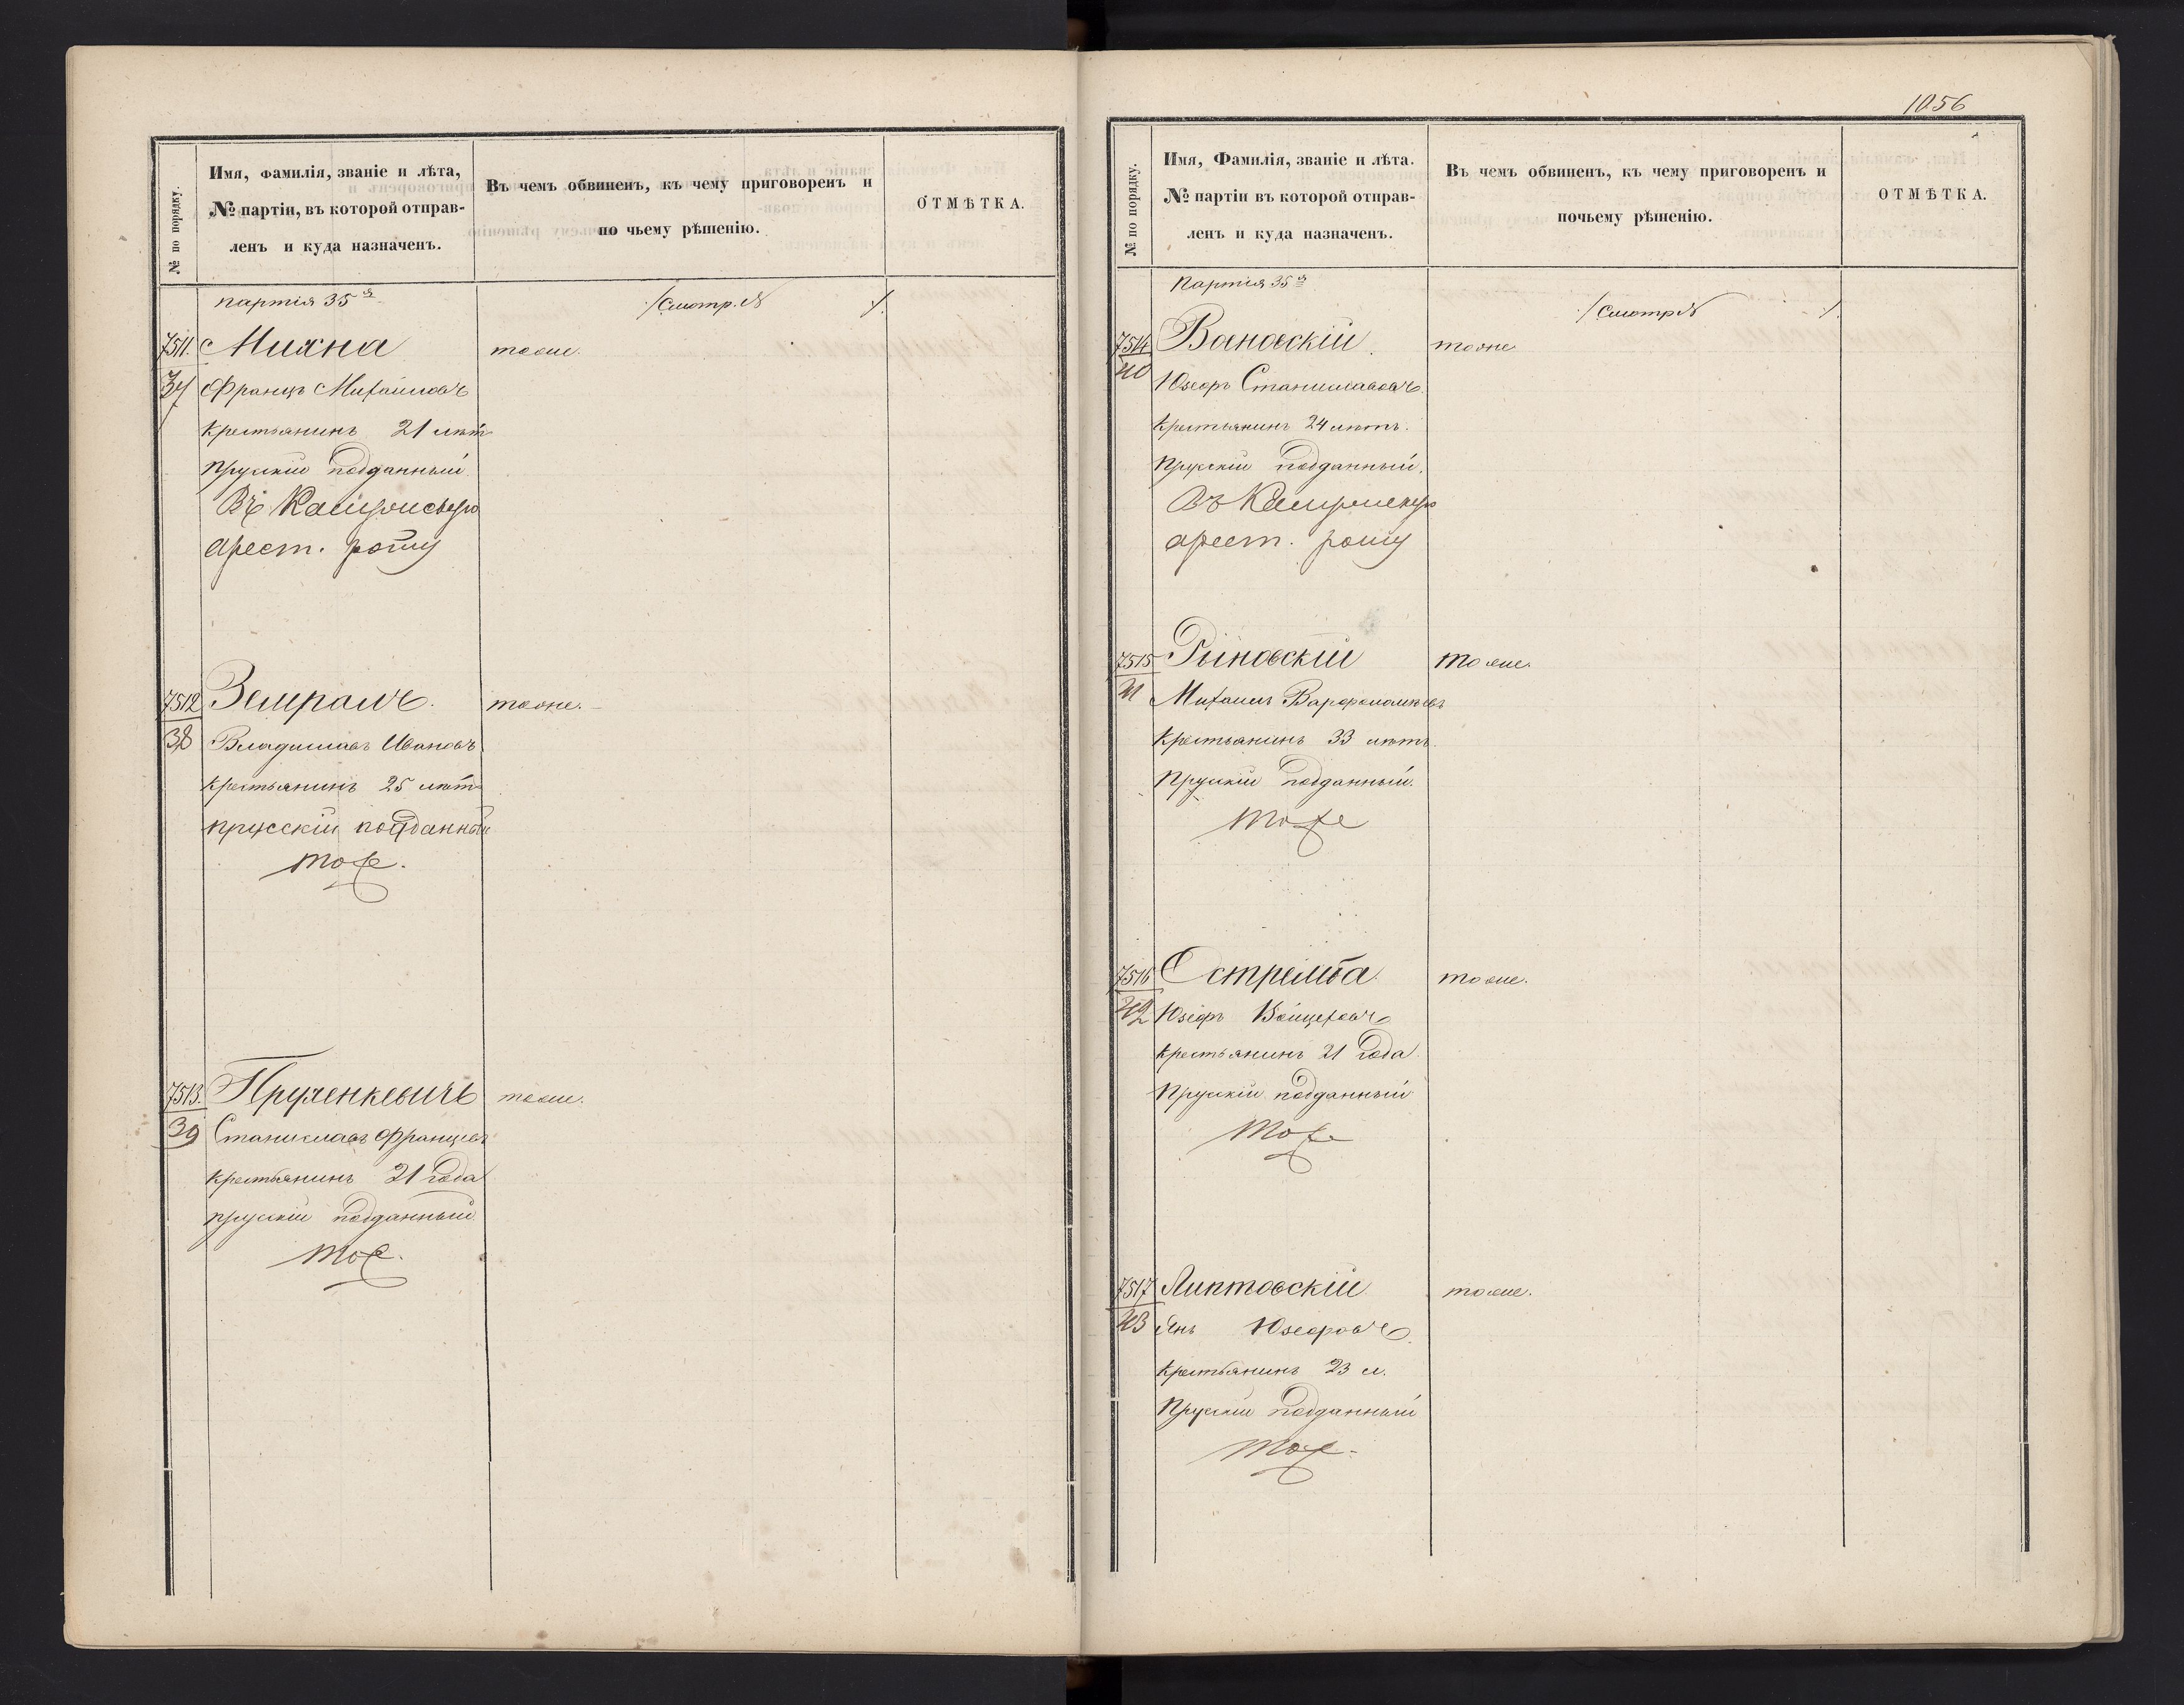 № по порядку.
Имя, фамилія, званіе и лѣта,
№ партіи, въ которой отправ-
ленъ и куда назначенъ.
Въ чемъ обвиненъ, къ чему приговоренъ и
по чьему рѣшенію.
ОТМѢТКА.
партія 35я
/Смотр. №  /.
7511. Михна тоже.
37 Францъ Михайловъ
Крестьянинъ 21 лѣт
Прускій подданный
Въ
Арест. роту
7512 тоже.
38 Владиславъ Ивановъ
Крестьянинъ 25 лѣт
прусскій подданный
тоже.
7513. тоже.
39 Станиславъ Францевъ
Крестьянинъ 21 года
прускій подданный
тоже.
1056
№ по порядку.
Имя, Фамилія, званіе и лѣта.
№ партіи въ которой отправ-
ленъ и куда назначенъ.
Въ чемъ обвиненъ, къ чему приговоренъ и
почьему рѣшенію.
ОТМѢТКА.
Партія 35я
/Смотр №  /.
7514 Вановскій тоже
40 Юзефъ Станиславовъ
Крестьянинъ 24 лѣтъ.
Прускій подданный.
Въ
арест. роту
7515 Рыновскій тоже.
41 Михаилъ Варфоломѣевъ
Крестьянинъ 33 лѣтъ
Прускій подданный.
тоже
7516 тоже.
42 Юзефъ Войцеховъ
Крестьянинъ 21 года
Прускій подданный
тоже
7517 Липтовскій тоже.
43 Янъ Юзефовъ
Крестьянинъ 23 л.
Прускій подданный
тоже.